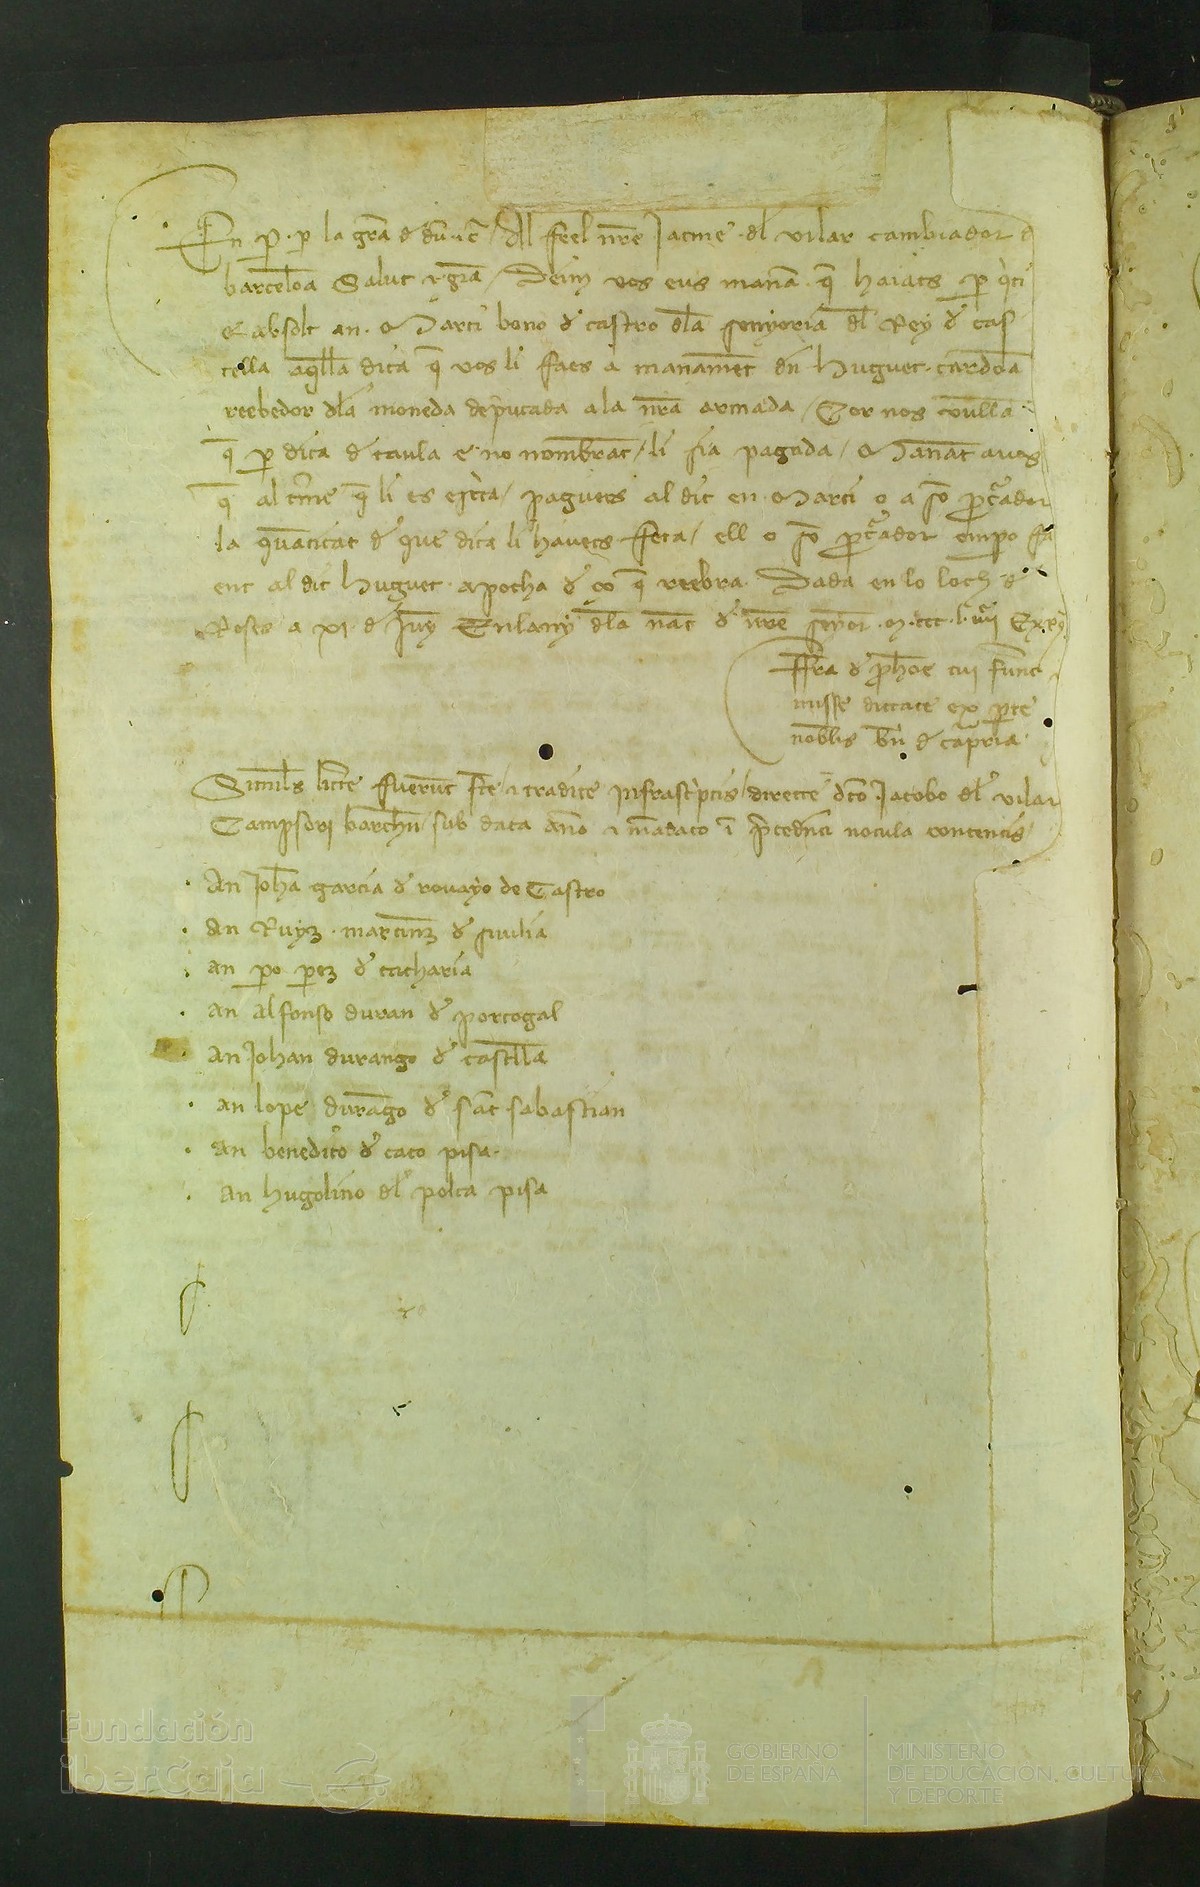 En P. p la gra d du ⁊c / Al feel nre Jacme dl vilar cambiador d
barceloa Salut ⁊ gra / Deim vos eus manam q haiats p quiti
& absolt an Marti bono d castro dla senyoria dl Rey d cas
tella aqlla dita q vos li faes a manamet dn Huguet cardoa
reebedor dla moneda deputada a la nra armada / Cor nos vullam
q p dita d taula e no nombrat / li sia pagada / Manat a vos
q al tme q li es escita / paguets al dit en Marti o a so pcurador
la quatitat d que dita li havets feta / ell o so pcurador empo fa
ent al dit Huguet apocha d ço q reebra. Dada en lo loch d
Roses a XI d Juny En lany dla nat d nre senyor M CCC L
ffra d phoe cui fuit
misse dictate ex pte
nobilis bn d capria
Similes lre fuerut fce ⁊ tradite infrascptis / directe dco Jacobo dl vilar
Campsori barchn / sub data ano ⁊ madato i pcedenti notula contentis
An Joha garcia d rovayo de Castro
An Ruyz martinz d sivilia
an po perz d
an alfonso duran d portogal
An Johan durango d castlla
an lope durago d sat sabastian
an benedito d caco pisa
an hugolino dl polta pisa
Fundación
iberCaja
GOBIERNO
DE ESPAÑA
MINISTERIO
DE EDUCACIÓN, CULTURA
Y DEPORTE